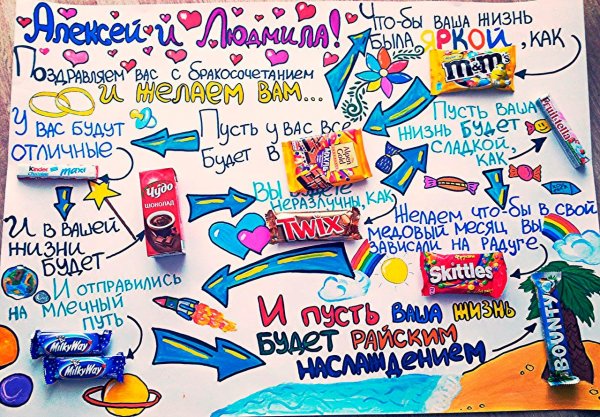 Алексей и Людмила!
Поздравляем вас с бракосочетанием
и желаем вам...
Что-бы ваша жизнь
была яркой, как
m&m's
Пусть ваша
жизнь будет
сладкой,
как
Fruittella
Пусть у вас все
будет в
Alpen Gold
У вас будут
отличные
Kinder
Chocolate
maxi
Чудо
ШОКОЛАД
Вы
неразлучны, как
TWIX
Желаем что-бы в свой
медовый месяц вы
зависали на радуге
Skittles
И в вашей
жизни
будет
И отправились
на млечный
путь
MilkyWay
MilkyWay
И пусть ваша жизнь
будет райским
наслаждением
BOUNTY